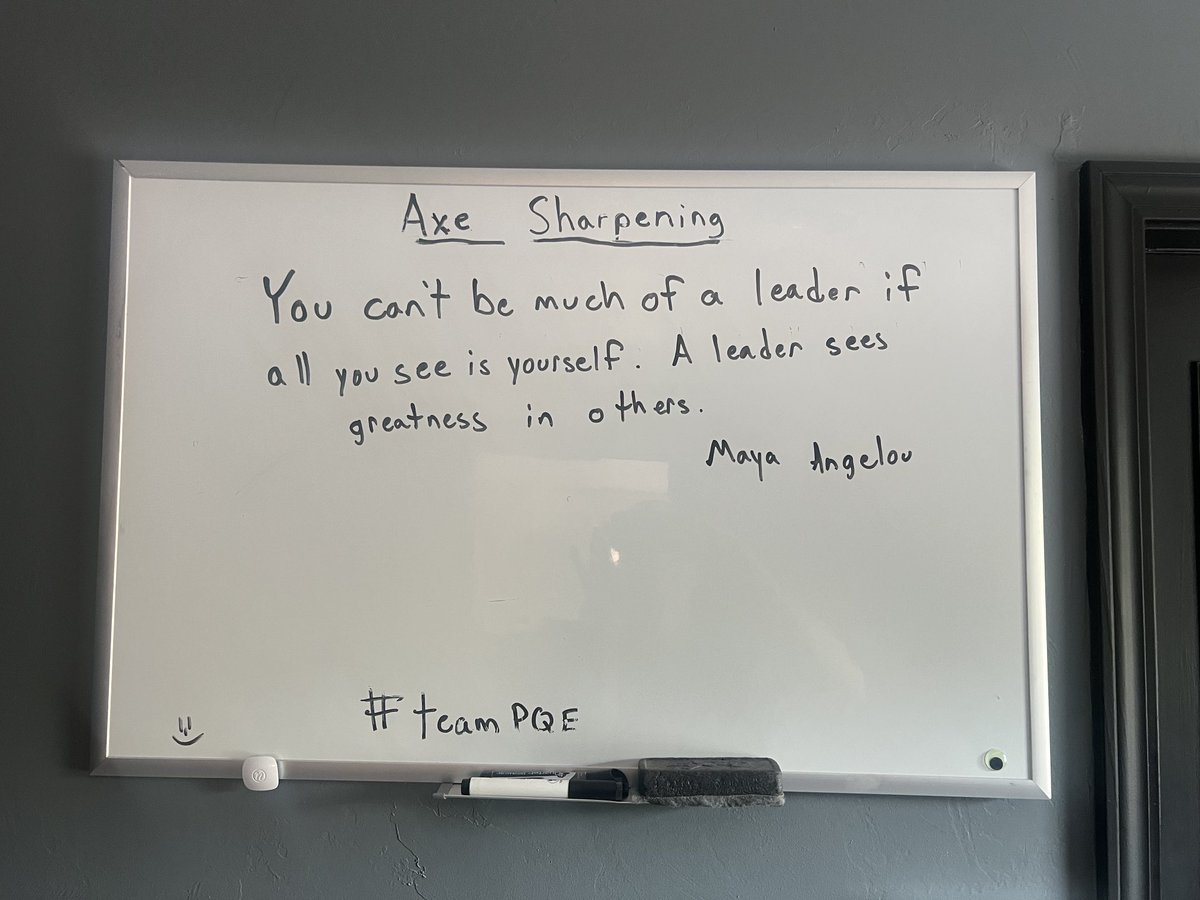 Axe Sharpening
You can't be much of a leader if
all you see is yourself. A leader sees
greatness in others.
Maya Angelou
#teamPQE